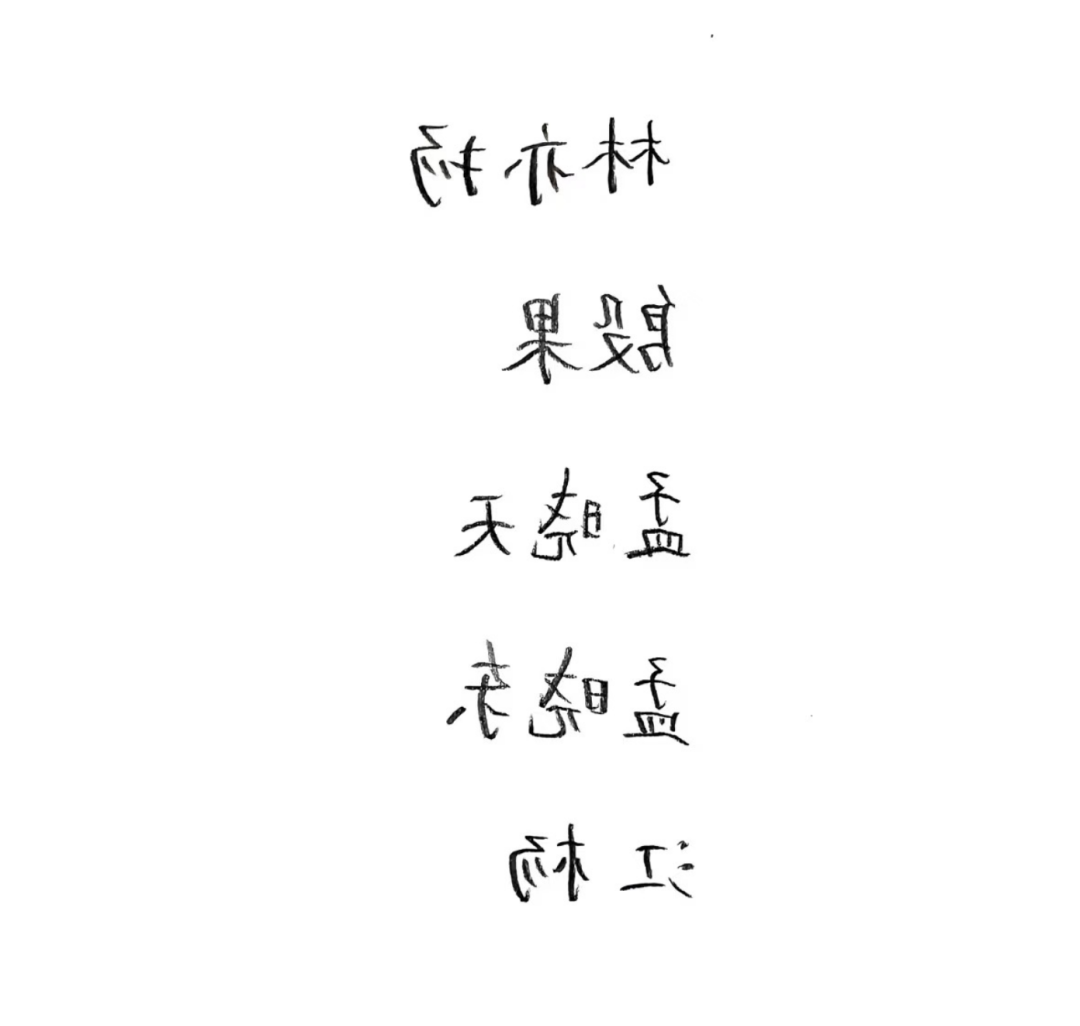 林亦扬
殷果
孟晓天
孟晓东
江杨